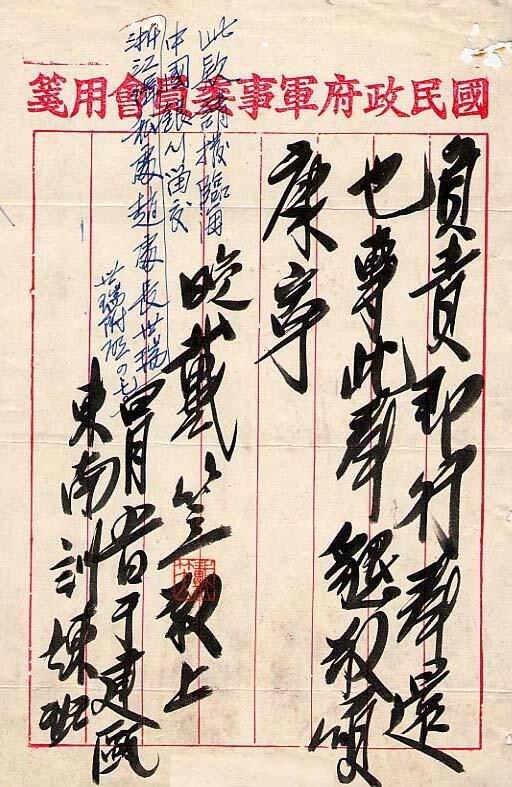 國民政府軍事委員會用箋
負責即行奉還
也專此奉懇敬頌
康寧
晚戴笠敬上
四月廿日于建甌
東南訓練班
此款請撥臨海
中國銀行留交
浙江緝私處趙處長世瑞
世瑞附啟